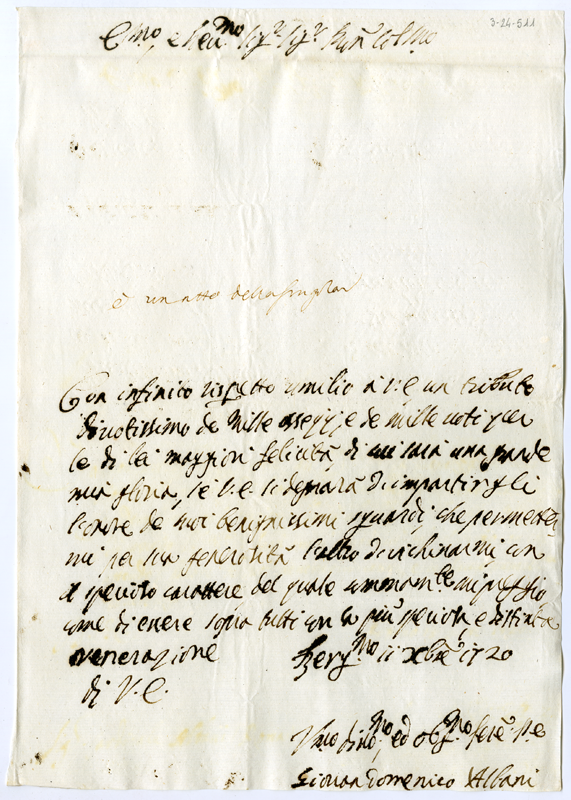 3-24-511
Em.mo e Rev.mo Sig.r Sig.r Pron Col.mo
è un atto della
Con infinito rispetto umilio a V.E. un tributo
divotissimo de mille ossequj, e de mille voti per
le di lei maggiori felicità, di cui sarà una grande
mia gloria, se V.E. si degnarà d'impartirgli
l'onore de suoi benignissimi sguardi, che permetta
mi per sua generosità l'altro d'inchinarmi con
il specioso carattere del quale ommnam.te mi preggio
come di essere sopra tutti con la più speciosa, e distinta
venerazione
di V.E.
Berg.mo 11 Xbre 1720
V.mo div.mo ed obg.mo ser.e
Giovan Domenico Albani